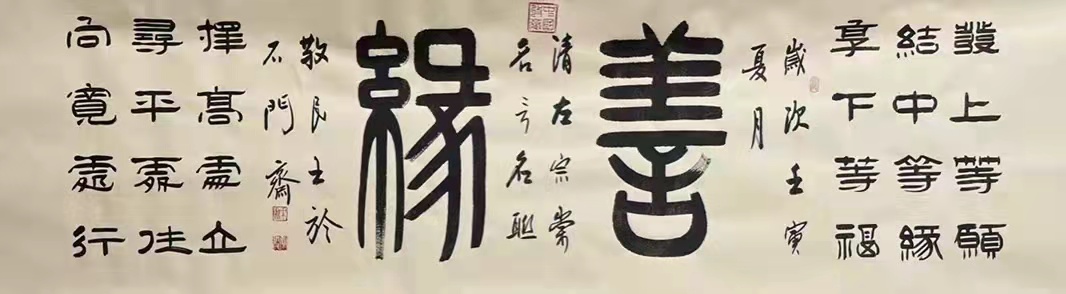 發上等願
結中等緣
享下等福
歲次壬寅
夏月
善
清左宗棠
名言名聯
緣
敬民於
石門齋
擇高處立
尋平處住
向寬處行